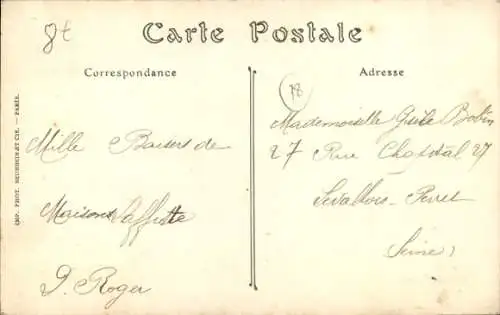 Carte Postale
Correspondance
Adresse
78
Mille Baisers de
Maisons Laffitte
P. Roger
Mademoiselle Bobin
27 Rue 27
Levallois-Perret
Seine)
IMP. PHOT. NEURDEIN ET CIE. — PARIS.